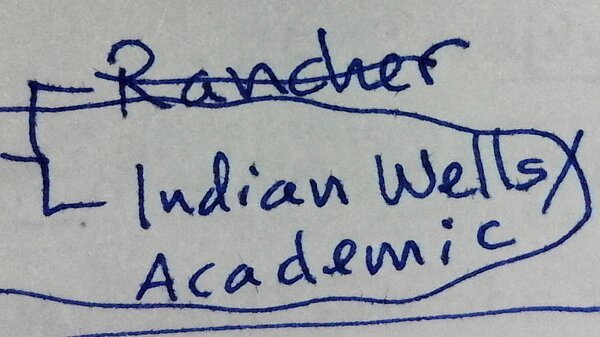 Rancher
Indian Wells/
Academic